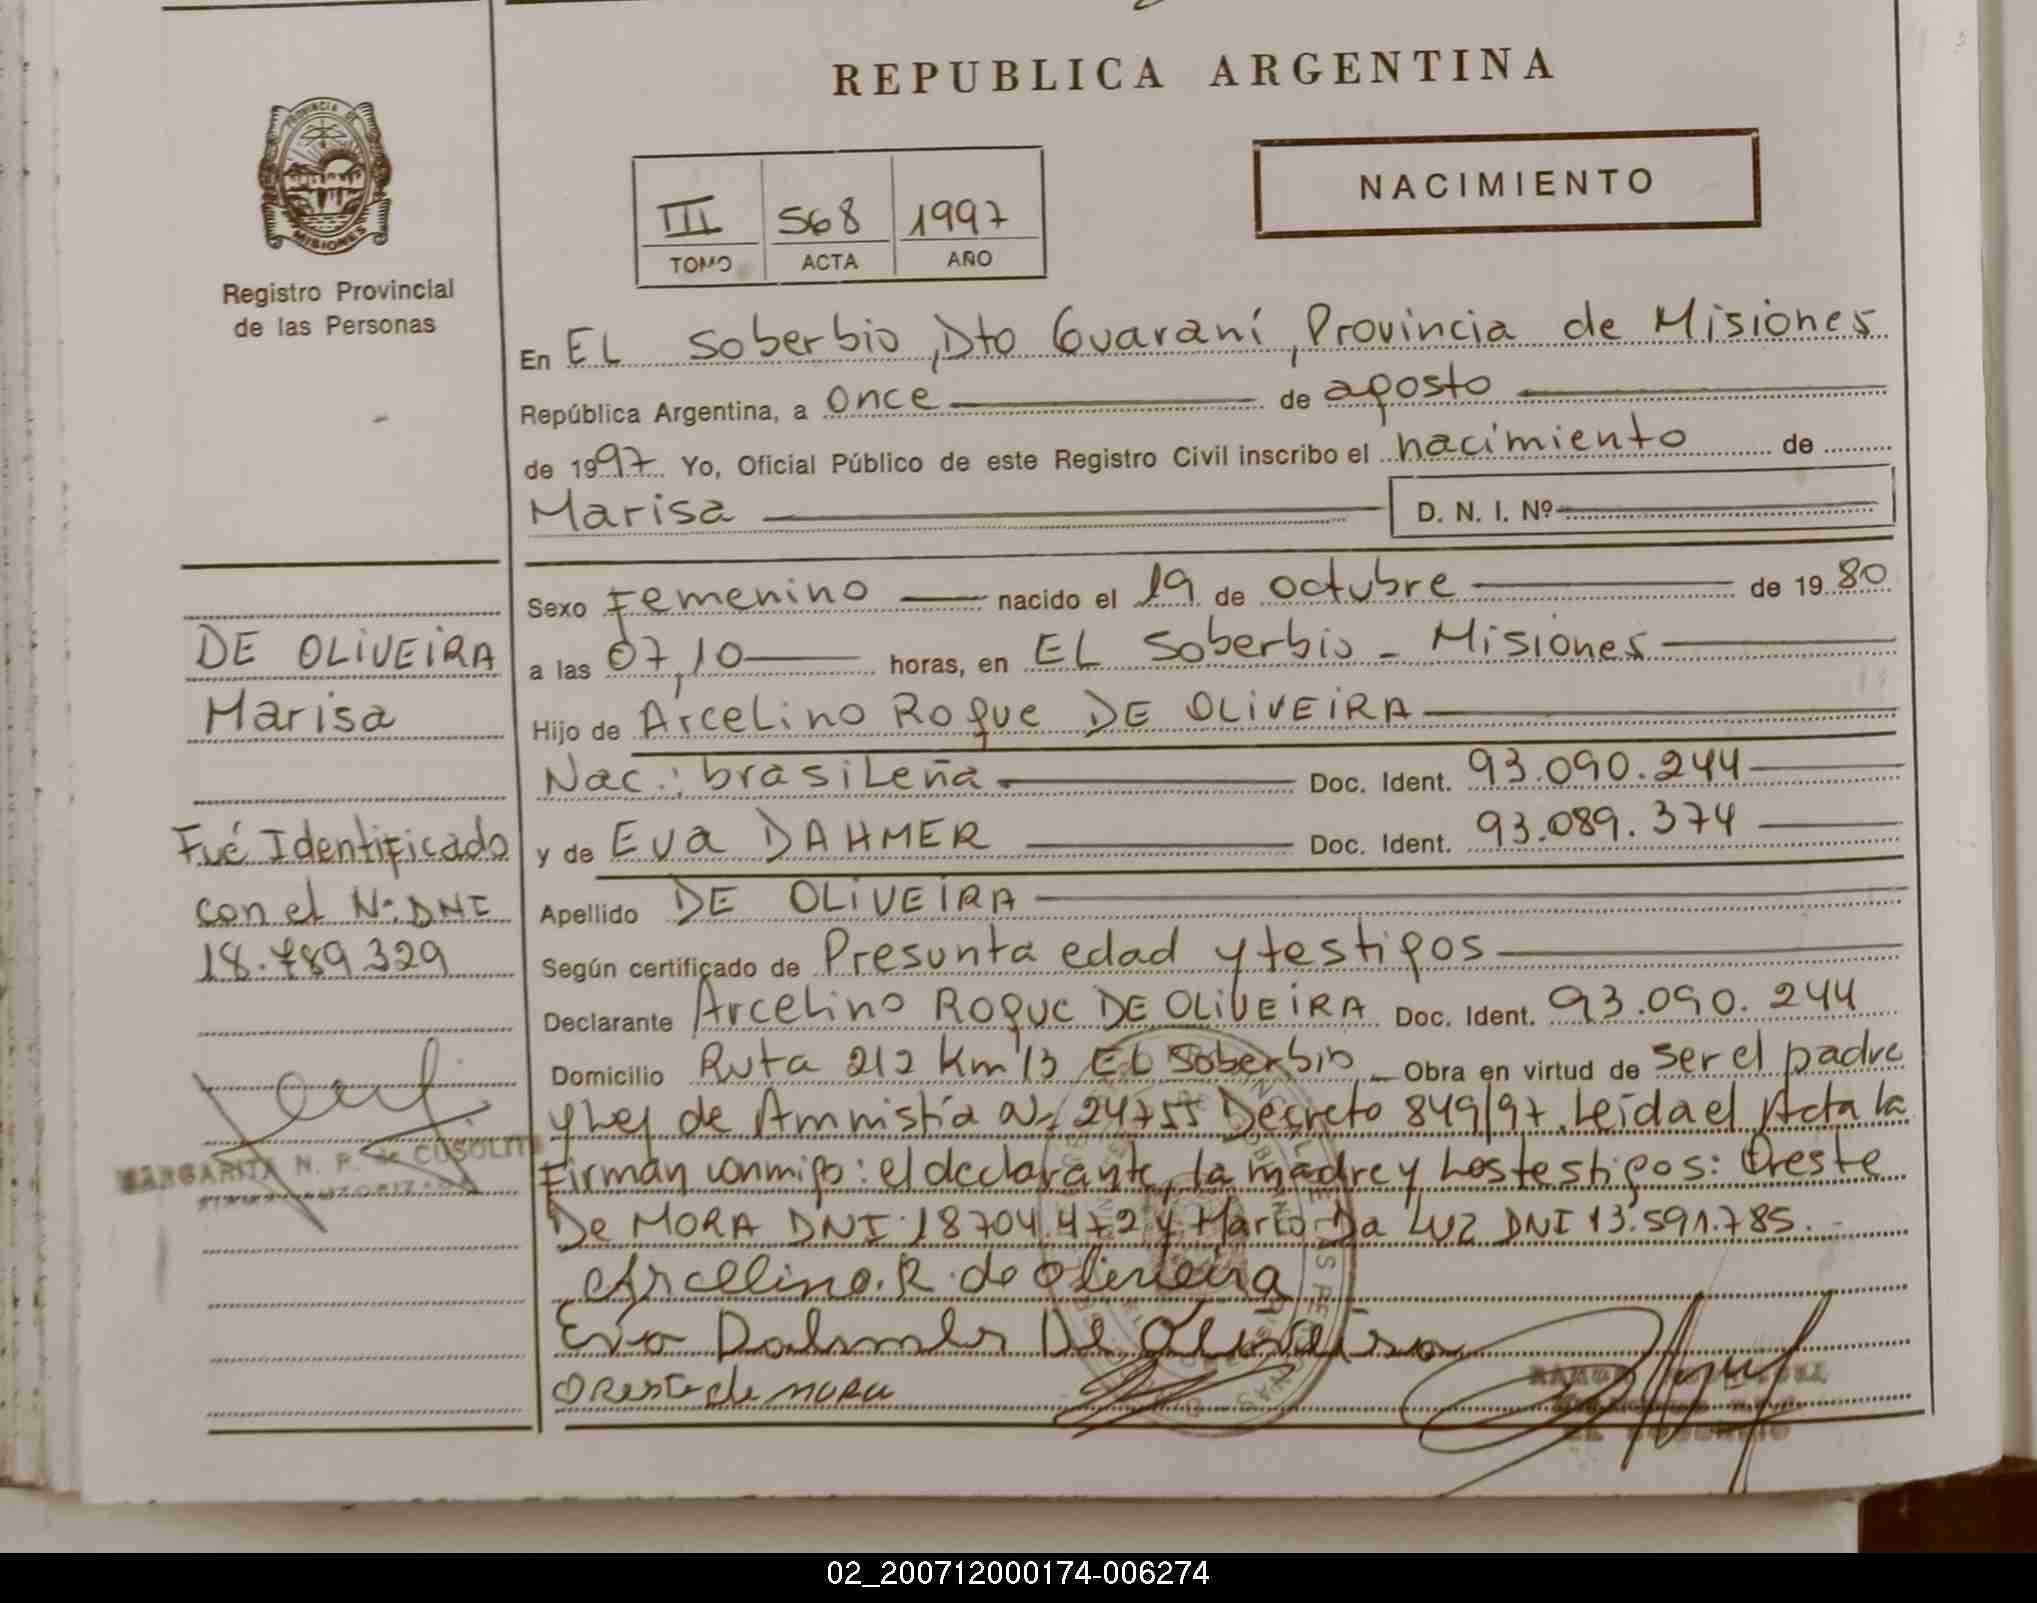 REPUBLICA ARGENTINA
NACIMIENTO
III 568 1997
TOMO ACTA AÑO
PROVINCIA DE
MISIONES
Registro Provincial
de las Personas
En EL Soberbio, Dto Guaraní, Provincia de Misiones
República Argentina, a once de agosto
de 1997 Yo, Oficial Público de este Registro Civil inscribo el nacimiento de
Marisa D. N. I. Nº
Sexo Femenino nacido el 19 de octubre de 1980
a las 07,10 horas, en EL Soberbio - Misiones
Hijo de Arcelino Roque DE OLIVEIRA
Nac.: brasileña Doc. Ident. 93.090.244
y de Eva DAHMER Doc. Ident. 93.089.374
Apellido DE OLIVEIRA
Según certificado de Presunta edad y testigos
Declarante Arcelino Roque DE OLIVEIRA Doc. Ident. 93.090.244
Domicilio Ruta 212 Km 13 EL Soberbio Obra en virtud de ser el padre
y Ley de Amnistía Nº 24755 Decreto 849/97. Leída el Acta la
Firman conmigo: el declarante, la madre y los testigos: Oreste
De MORA DNI 18704.472 y Marco Da LUZ DNI 13.591.785.
Arcelino.R. de Oliveira
Eva Dahmer De Oliveira
Oreste de mora
DE OLIVEIRA
Marisa
Fué Identificado
con el Nº DNI
18.789.329
MARGARITA N. P. de CUSOLITO
EL SOBERBIO
02_200712000174-006274